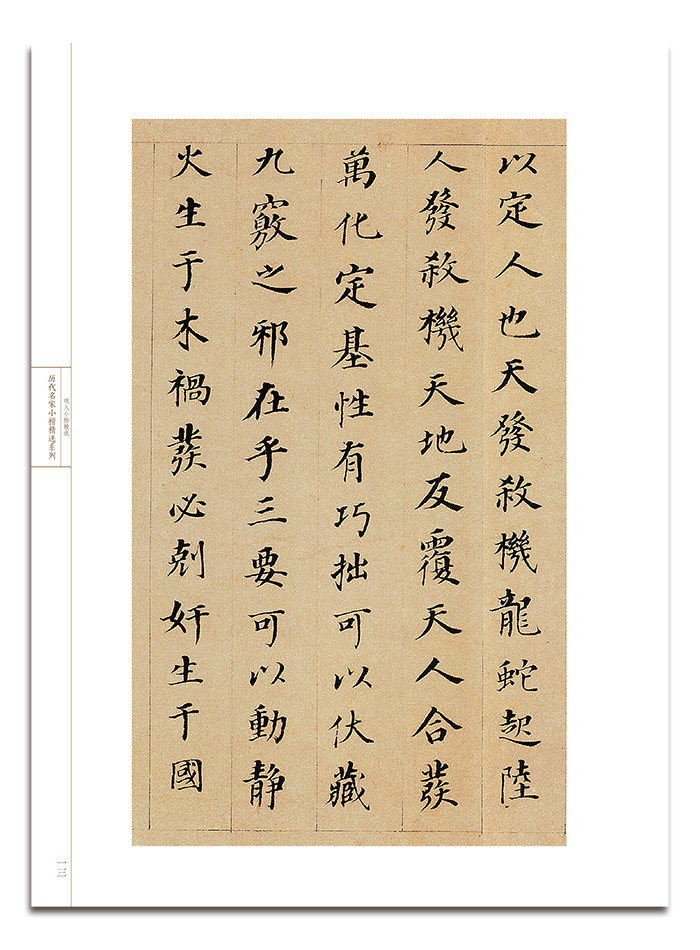 以定人也天發殺機龍蛇起陸
人發殺機天地反覆天人合發
萬化定基性有巧拙可以伏藏
九竅之邪在乎三要可以動靜
火生于木禍發必剋奸生于國
明人小楷精选
历代名家小楷精选系列
一三